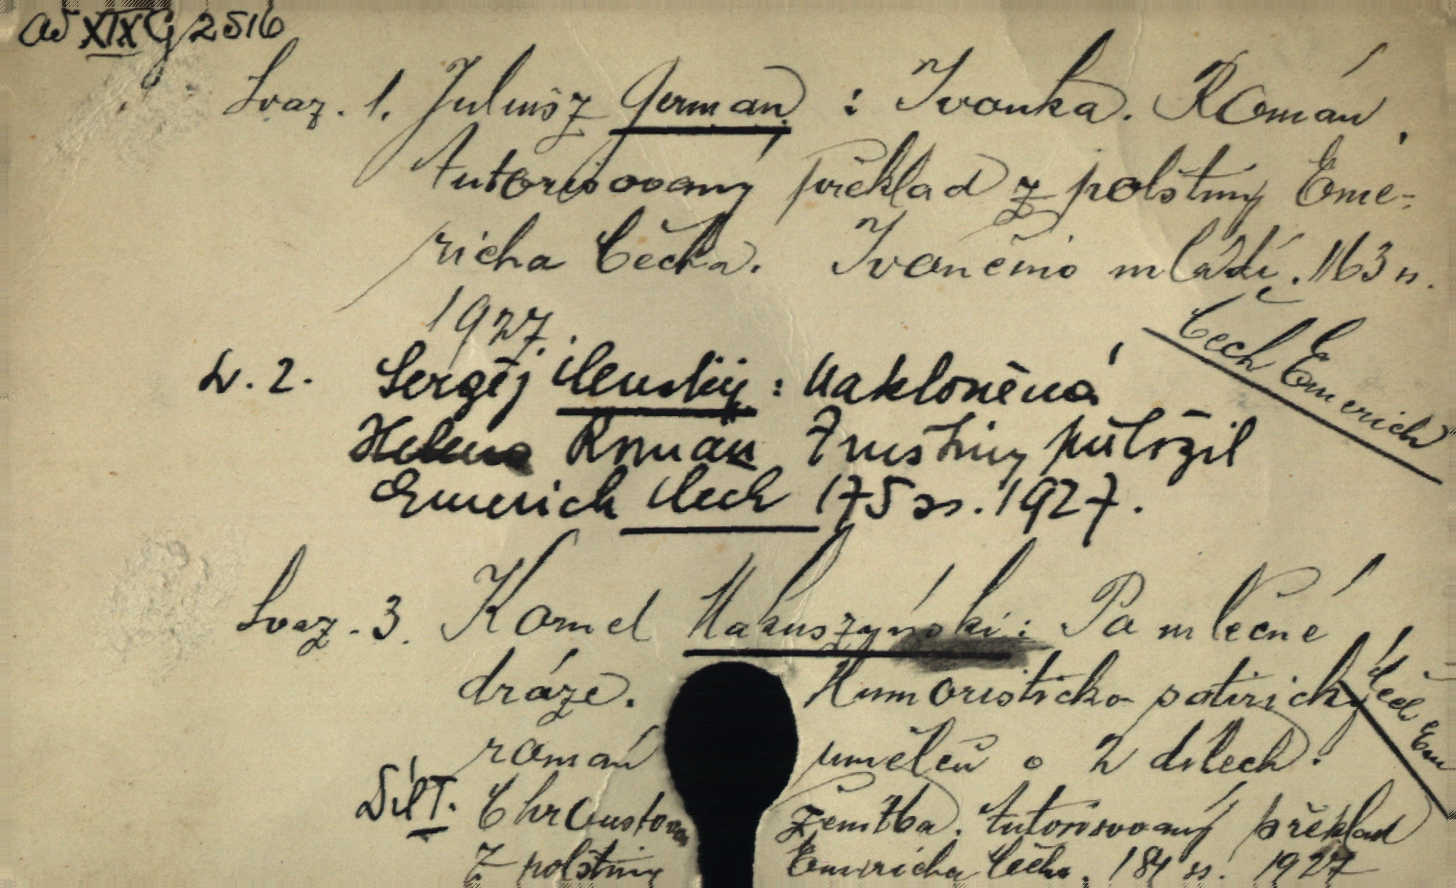 ad XIX G 2516
Svaz. 1. Juliusz German : Ivonka. Román.
Autorisovaný překlad z polštiny Eme-
richa Čecha. Ivončino mládí. 163 s.
1927.
Čech Emerich
Sv. 2. Sergěj : Nakloněná
Helena Román Z ruštiny přeložil
Emerich Čech 175 ss. 1927.
Svaz. 3. Kornel Makuszyński: Po mléčné
dráze. Humoristicko satirický
Čech Em
román umělců o 2 dílech.
Díl I. ženitba. Autorisovaný překlad
Z polštiny Emericha Čecha. 184 ss. 1927